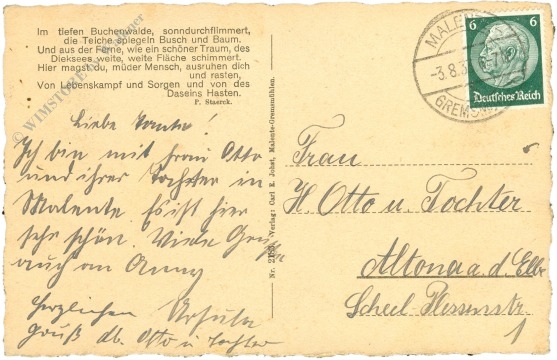 Im tiefen Buchenwalde, sonndurchflimmert,
die Teiche spiegeln Busch und Baum.
Und aus der Ferne, wie ein schöner Traum, des
Dieksees weite, weite Fläche schimmert.
Hier magst du, müder Mensch, ausruhen dich
und rasten,
Von Lebenskampf und Sorgen und von des
Daseins Hasten.
P. Staerck.
Liebe Tante!
Ich bin mit Frau Otto
und ihrer Tochter in
Malente. Es ist hier
sehr schön. Viele Grüße
auch an Anny
Herzlichen Ursula
Gruß Otto u Tochter
Verlag: Carl E. Jobst, Malente-Gremsmühlen.
MALENTE
-3.8.3
GREMSM
6 6
Deutsches Reich
Frau
H. Otto u. Tochter
Altona a. d. Elbe
Scheel-Plessenstr.
© WIMSTORE